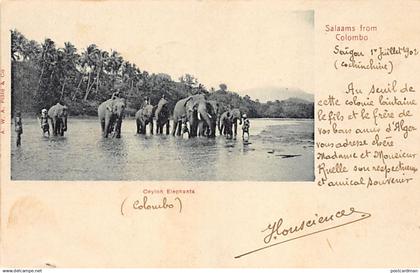 Salaams from
Colombo
Saigon 1er Juillet 1902
(Cochinchine)
Au seuil de
cette colonie lointaine
le fils et le frère de
vos bons amis d'Alger
vous adresse chère
Madame et Monsieur
Ruelle son respectueux
et amical souvenir
A. W. A. Plâté & Co
Ceylon Elephants
(Colombo)
postcardman.com